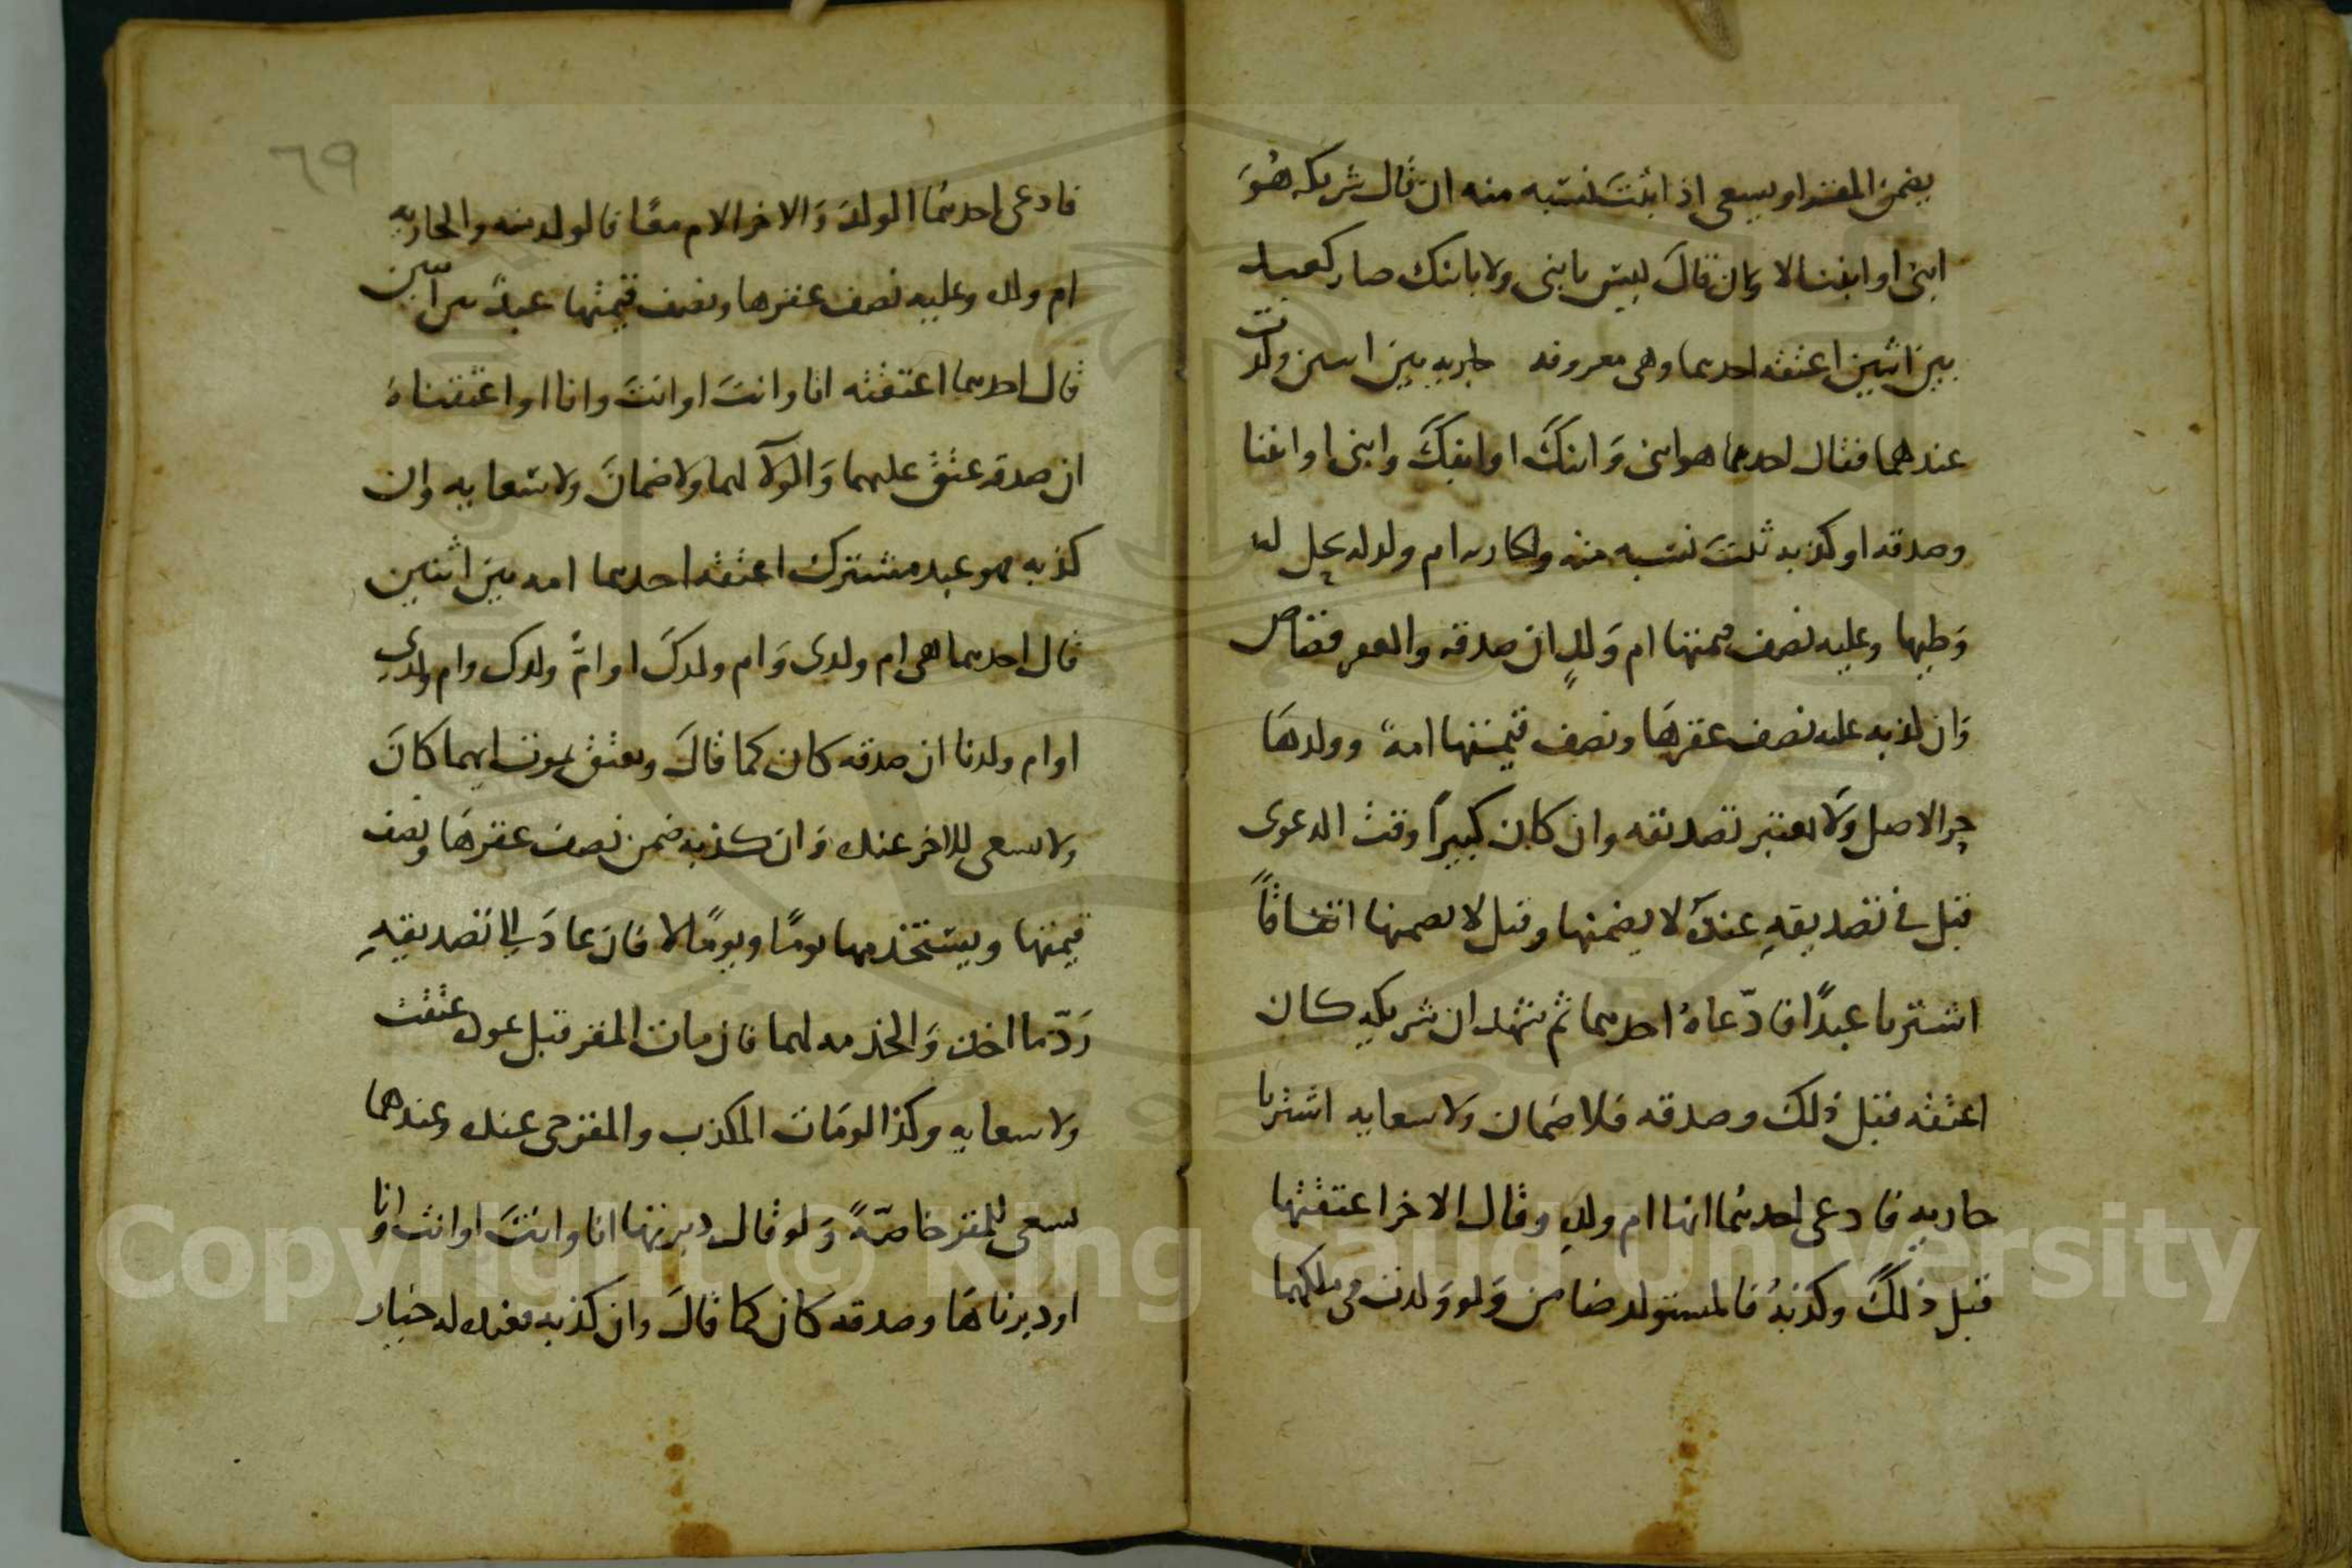 يضمن المقر او يسعى اذ اثبت نسبه منه ان قال شريكه هو
ابنى او ابننا لا وان قال ليس بابنى ولا بابنك صار كعبد
بين اثنين اعتقه احدهما وهى معروفه جاريه بين اثنين ولدت
عندهما فقال احدهما هو ابنى وابنك او ابنك وابنى او ابننا
وصدقه او كذبه ثبت نسبه منه والجاريه ام ولد له يحل له
وطيها وعليه نصف قيمتها ام ولد ان صدقه والعقر قصاص
وان كذبه عليه نصف عقرها ونصف قيمتها امة وولدها
حر الاصل ولا يعتبر تصديقه وان كان كبيرا وقت الدعوى
قيل فى تصديقه عنده لا يضمنها وقيل لا يضمنها اتفاقا
اشتريا عبدا فادعاه احدهما ثم شهد ان شريكه كان
اعتقه قبل ذلك وصدقه فلا ضمان ولا سعايه اشتريا
جاريه فادعى احدهما انها ام ولد وقال الاخر اعتقتها
قبل ذلك وكذبه فالمستولد ضامن ولو ولدت فى ملكهما
٦٩
فادعى احدهما الولد والاخر الام معا فالولد منه والجاريه
ام ولده وعليه نصف عقرها ونصف قيمتها عبد بين اثنين
قال احدهما اعتقته انا وانت او انت وانا او اعتقناه
ان صدقه عتق عليهما والولاء لهما ولا ضمان ولا سعايه وان
كذبه فهو عبد مشترك اعتقه احدهما امه بين اثنين
قال احدهما هى ام ولدى وام ولدك او ام ولدك وام ولدى
او ام ولدنا ان صدقه كان كما قال وتعتق بموت ايهما كان
ولا تسعى للاخر عنده وان كذبه ضمن نصف عقرها ونصف
قيمتها ويستخدمها يوما ويوما لا فان عاد الى تصديقه
رد ما اخذ والخدمه لهما فان مات المقر قبل عوده عتقت
ولا سعايه وكذا لو مات المكذب والمقر حى عنده وعندهما
تسعى للمقر خاصة ولو قال دبرتها انا وانت او انت وانا
او دبرناها وصدقه كان كما قال وان كذبه فعنده له خيار